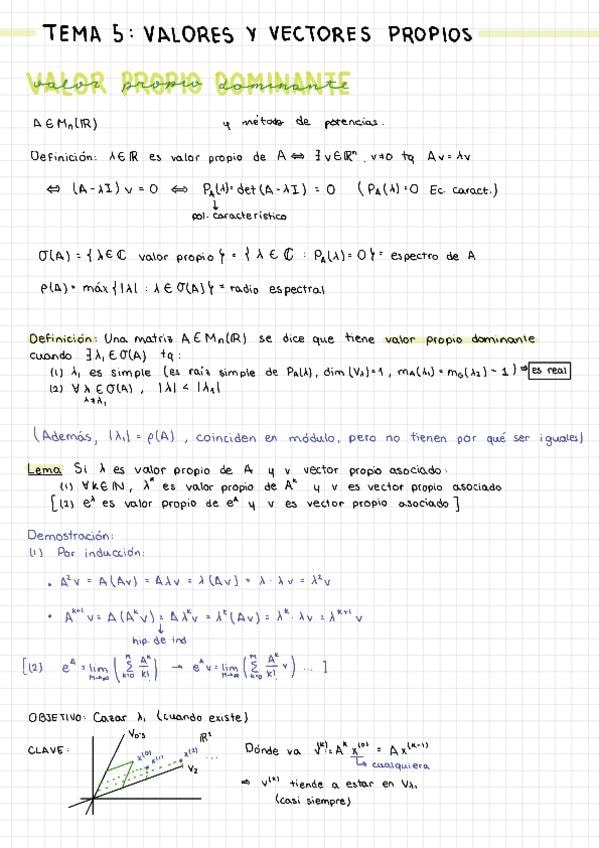 TEMA 5: VALORES Y VECTORES PROPIOS
valor propio dominante
A ∈ Mn(ℝ) y método de potencias.
Definición: λ∈ℝ es valor propio de A ⇔ ∃ v∈ℝⁿ, v≠0 tq Av = λv
⇔ (A-λI)v = 0 ⇔ P_A(λ) = det(A-λI) = 0 (P_A(λ)=0 Ec. caract.)
↓
pol. característico
σ(A) = {λ∈ℂ valor propio} = {λ ∈ ℂ : P_A(λ)=0} = espectro de A
ρ(A) = máx{|λ| : λ ∈ σ(A)} = radio espectral
Definición: Una matriz A ∈ Mn(ℝ) se dice que tiene valor propio dominante
cuando ∃ λ₁ ∈ σ(A) tq:
(1) λ₁ es simple (es raíz simple de P_A(λ), dim(V_λ)=1, m_A(λ₁) = m_G(λ₂) - 1) ⇒ es real
(2) ∀ λ ∈ σ(A), |λ| < |λ₁|
λ≠λ₁
(Además, |λ₁| = ρ(A), coinciden en módulo, pero no tienen por qué ser iguales)
Lema Si λ es valor propio de A y v vector propio asociado:
(1) ∀k∈ℕ, λᵏ es valor propio de Aᵏ y v es vector propio asociado
[(2) e^λ es valor propio de e^A y v es vector propio asociado]
Demostración:
(1) Por inducción:
• A²v = A(Av) = Aλv = λ(Av) = λ·λv = λ²v
• Aᵏ⁺¹v = A(Aᵏv) = Aλᵏv = λᵏ(Av) = λᵏ·λv = λᵏ⁺¹v
↓
hip. de ind
[(2) e^A = lim_{M→∞} (∑_{k=0}^{M} Aᵏ/k!) → e^A v = lim_{M→∞} (∑_{k=0}^{M} Aᵏ/k! v) ... ]
OBJETIVO: Cazar λ₁ (cuando existe)
CLAVE: V₀'s ℝ² x⁽⁰⁾ x⁽¹⁾ x⁽²⁾ ... V₂
Dónde va v⁽ᵏ⁾ = Aᵏ x⁽⁰⁾ = A x⁽ᵏ⁻¹⁾
↳ cualquiera
⇒ v⁽ᵏ⁾ tiende a estar en V_λ₁
(casi siempre)